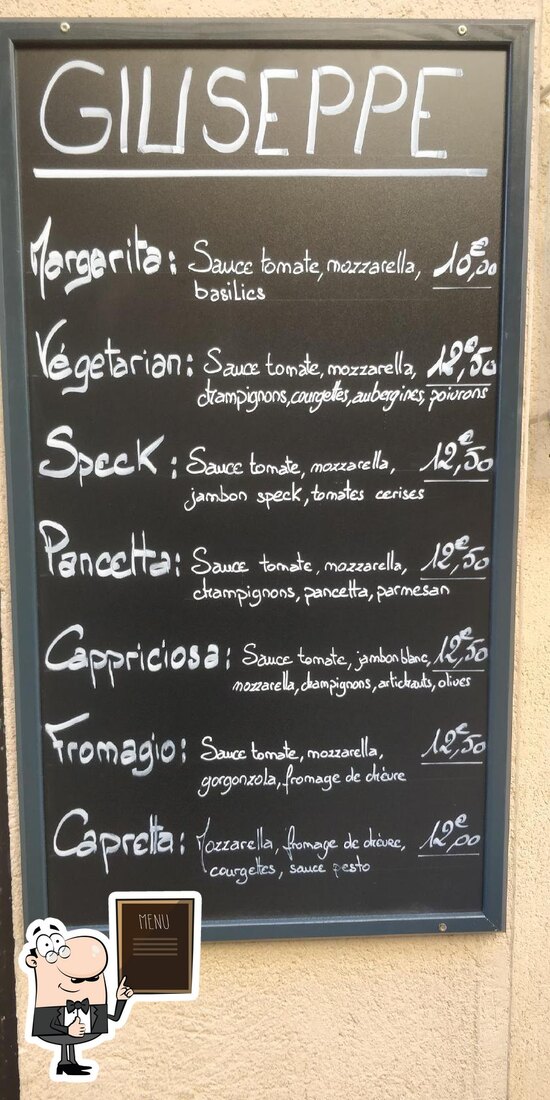 GIUSEPPE
Margarita: Sauce tomate, mozzarella, 10€,00
basilics
Végetarian: Sauce tomate, mozzarella, 12€,50
champignons, courgettes, aubergines, poivrons
Speck: Sauce tomate, mozzarella, 12€,50
jambon speck, tomates cerises
Pancetta: Sauce tomate, mozzarella, 12€,50
champignons, pancetta, parmesan
Cappriciosa: Sauce tomate, jambon blanc, 12€,50
mozzarella, champignons, artichauts, olives
Fromagio: Sauce tomate, mozzarella, 12€,50
gorgonzola, fromage de chèvre
Capretta: Mozzarella, fromage de chèvre, 12€,00
courgettes, sauce pesto
MENU